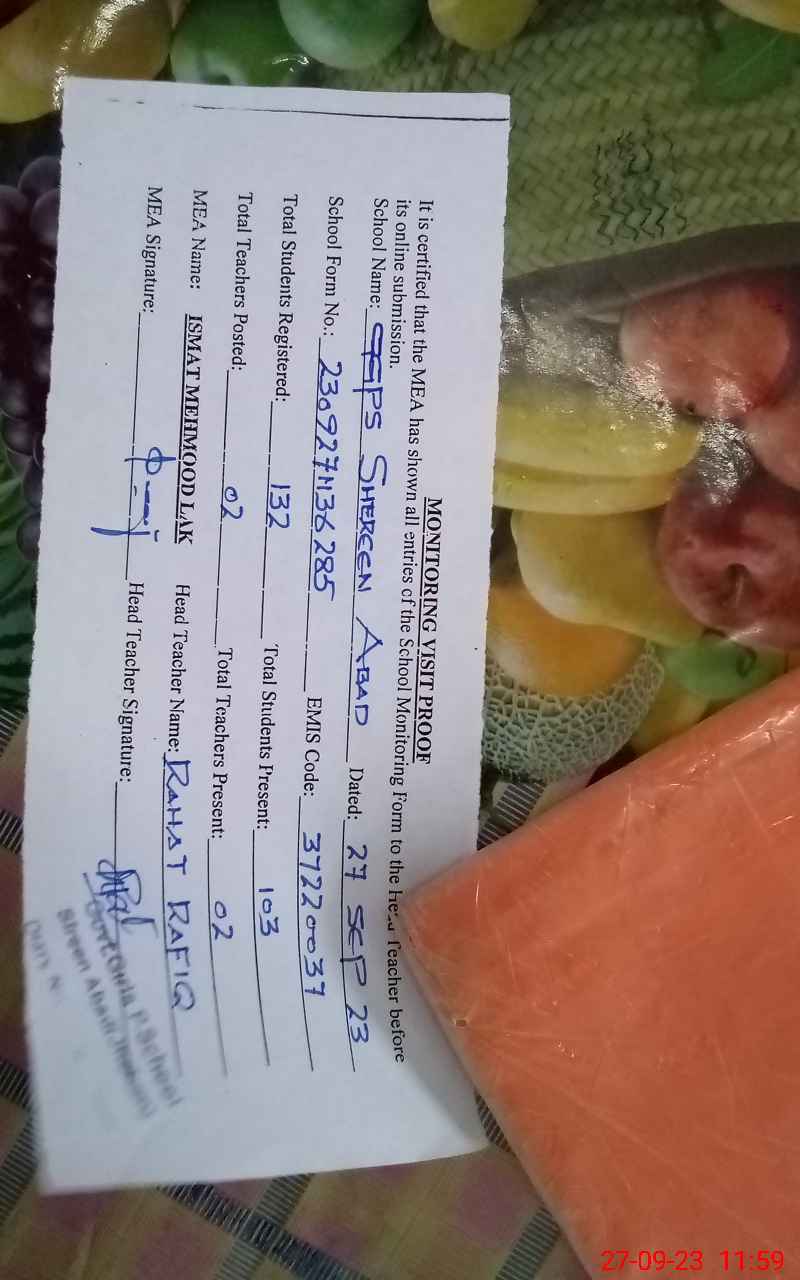 MONITORING VISIT PROOF
It is certified that the MEA has shown all entries of the School Monitoring Form to the Head Teacher before
its online submission.
School Name: GGPS SHEREEN ABAD Dated: 27 SEP 23
School Form No.: 2309271136285 EMIS Code: 37220037
Total Students Registered: 132 Total Students Present: 103
Total Teachers Posted: 02 Total Teachers Present: 02
MEA Name: ISMAT MEHMOOD LAK Head Teacher Name: RAHAT RAFIQ
MEA Signature: Head Teacher Signature:
Govt Girls P. School
Sireen Abad
27-09-23 11:59